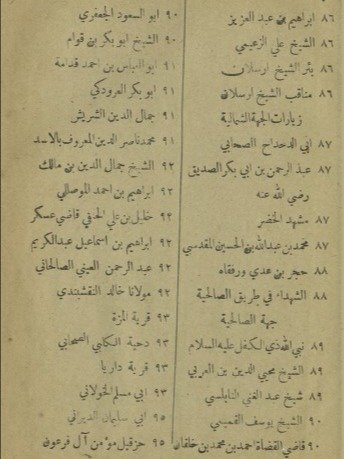 ٨٦ ابراهيم بن عبد العزيز
٨٦ الشيخ علي الزعيمي
٨٦ بئر الشيخ ارسلان
٨٦ مناقب الشيخ ارسلان
زيارات الجهة الشمالية
٨٧ ابي الدحداح الصحابي
٨٧ عبد الرحمن بن ابي بكر الصديق
رضي الله عنه
٨٧ مشهد الخضر
٨٧ محمد بن عبدالله بن الحسين المقدسي
٨٨ حجر بن عدي ورفقاه
٨٨ الشهداء في طريق الصالحية
جهة الصالحية
٨٩ نبي الله ذي الكفل عليه السلام
٨٩ الشيخ محيي الدين بن العربي
٨٩ شيخ عبد الغني النابلسي
٩٠ الشيخ يوسف القميني
٩٠ قاضي القضاة احمد بن محمد بن خلقان
٩٠ ابو السعود الجعفري
٩٠ الشيخ ابو بكر بن قوام
٩١ ابو العباس بن احمد قدامة
٩١ ابو بكر العرودكي
٩١ جمال الدين الشريشي
٩١ محمد ناصر الدين المعروف بالاسد
٩٢ الشيخ جمال الدين بن مالك
٩٢ ابراهيم بن احمد الموصلي
٩٢ خليل بن علي الحنفي قاضي عسكر
٩٢ ابراهيم بن اسماعيل عبد الكريم
٩٢ عبد الرحمن العيني الصالحاني
٩٢ مولانا خالد النقشبندي
٩٣ قرية المزة
٩٣ دحية الكلبي الصحابي
٩٣ قرية داريا
٩٣ ابي مسلم الخولاني
٩٥ ابي سليمان الديراني
٩٥ حزقيل مؤمن آل فرعون